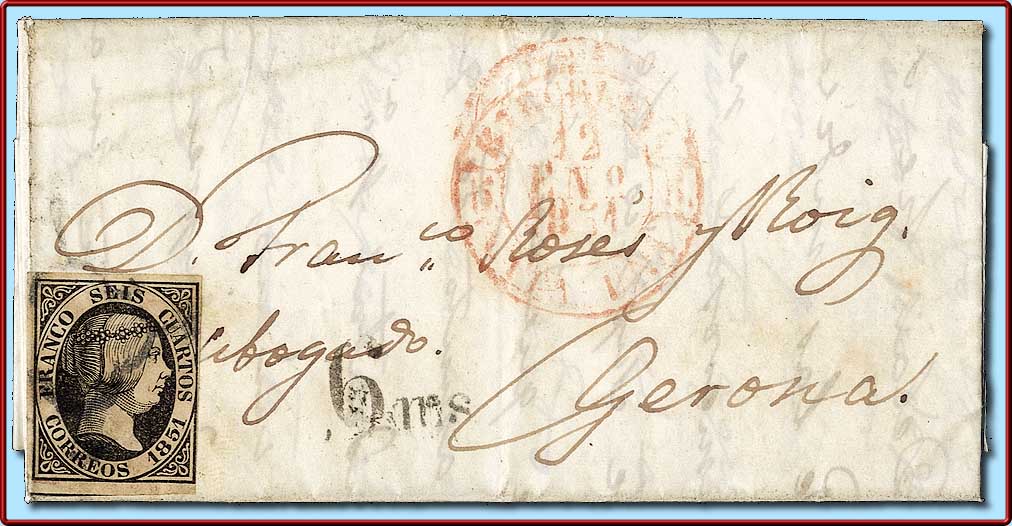 12
ENO
1851
D. Franco Rosés y Roig.
Abogado.
Gerona.
FRANCO SEIS CUARTOS
CORREOS 1851
6